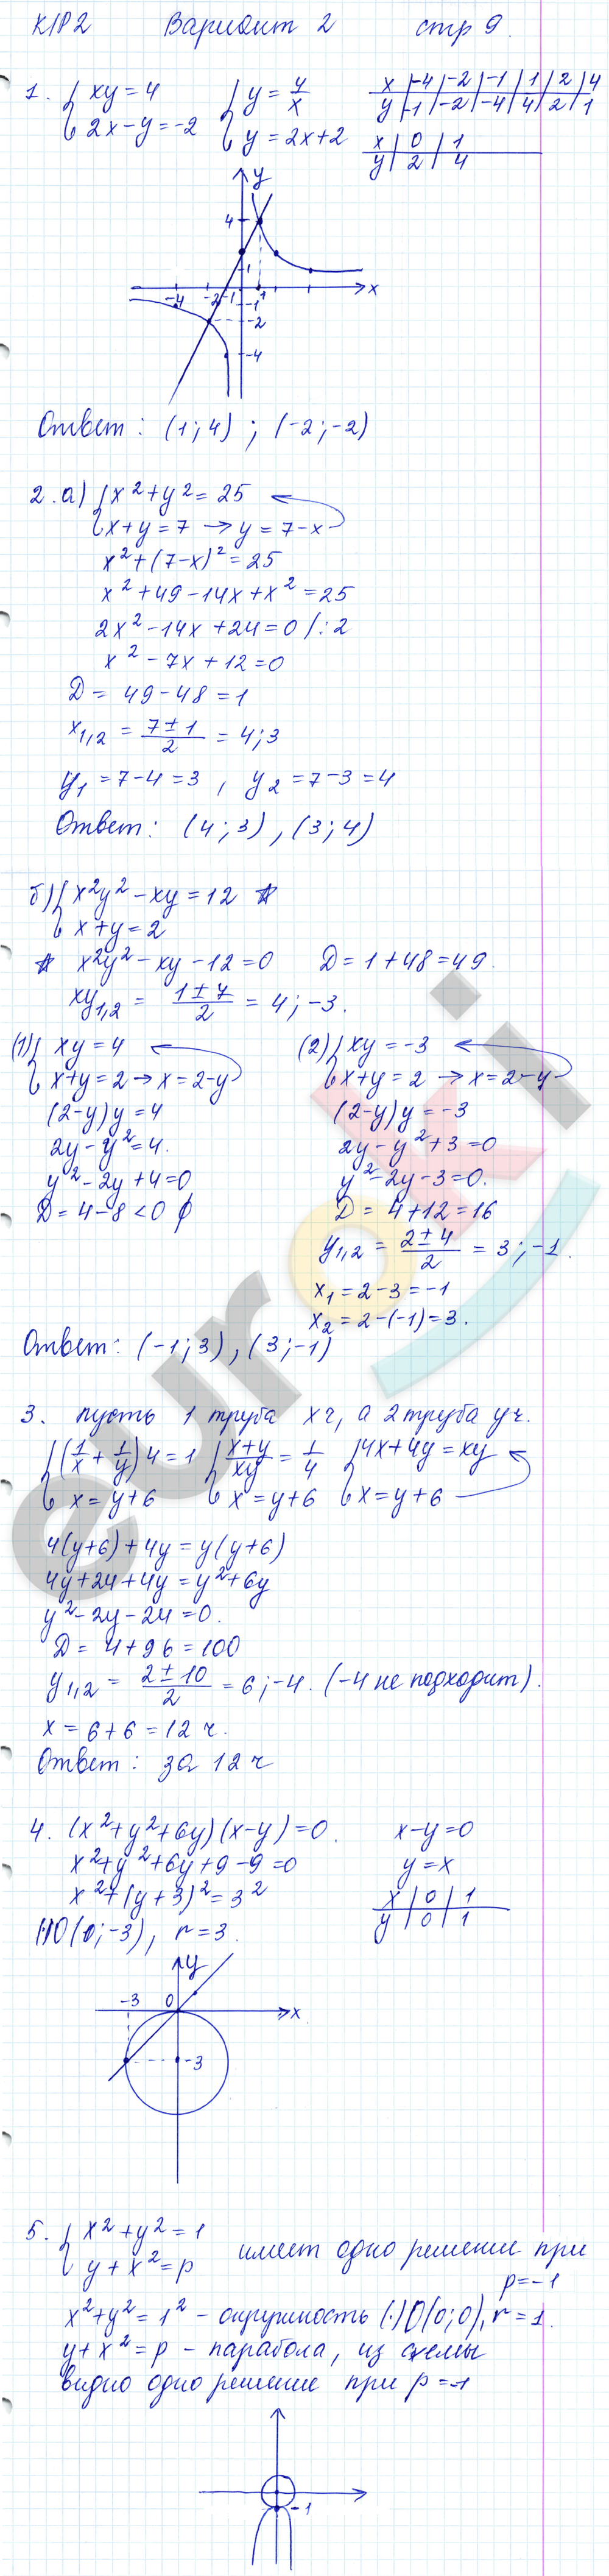 К/Р2 Вариант 2 стр 9.
1. { xy = 4 { y = 4/x x | -4 | -2 | -1 | 1 | 2 | 4
2x - y = -2 y = 2x + 2 y | -1 | -2 | -4 | 4 | 2 | 1
x | 0 | 1
y | 2 | 4
y
4
1
-4 -2 -1 1 x
-1
-2
-4
Ответ: (1; 4) ; (-2; -2)
2. а) { x² + y² = 25
x + y = 7 → y = 7 - x
x² + (7-x)² = 25
x² + 49 - 14x + x² = 25
2x² - 14x + 24 = 0 /:2
x² - 7x + 12 = 0
D = 49 - 48 = 1
x₁,₂ = (7 ± 1)/2 = 4; 3
y₁ = 7 - 4 = 3 , y₂ = 7 - 3 = 4
Ответ: (4; 3) , (3; 4)
б) { x²y² - xy = 12 ☆
x + y = 2
☆ x²y² - xy - 12 = 0 D = 1 + 48 = 49.
xy₁,₂ = (1 ± 7)/2 = 4; -3.
(1) { xy = 4 (2) { xy = -3
x + y = 2 → x = 2 - y x + y = 2 → x = 2 - y
(2-y)y = 4 (2-y)y = -3
2y - y² = 4. 2y - y² + 3 = 0
y² - 2y + 4 = 0 y² - 2y - 3 = 0.
D = 4 - 8 < 0 ∅ D = 4 + 12 = 16
y₁,₂ = (2 ± 4)/2 = 3; -1.
x₁ = 2 - 3 = -1
x₂ = 2 - (-1) = 3.
Ответ: (-1; 3) , (3; -1)
3. пусть 1 труба x ч, а 2 труба y ч.
{ (1/x + 1/y) 4 = 1 { (x+y)/xy = 1/4 { 4x + 4y = xy
x = y + 6 x = y + 6 x = y + 6
4(y+6) + 4y = y(y+6)
4y + 24 + 4y = y² + 6y
y² - 2y - 24 = 0.
D = 4 + 96 = 100
y₁,₂ = (2 ± 10)/2 = 6; -4. (-4 не подходит).
x = 6 + 6 = 12 ч.
Ответ: за 12 ч
4. (x² + y² + 6y)(x - y) = 0. x - y = 0
x² + y² + 6y + 9 - 9 = 0 y = x
x² + (y+3)² = 3² x | 0 | 1
y | 0 | 1
(·)O(0; -3), r = 3.
y
-3 0 x
-3
5. { x² + y² = 1
y + x² = p имеет одно решение при
p = -1
x² + y² = 1² - окружность (·)O(0; 0), r = 1.
y + x² = p - парабола, из схемы
видно одно решение при p = -1
-1
euroki